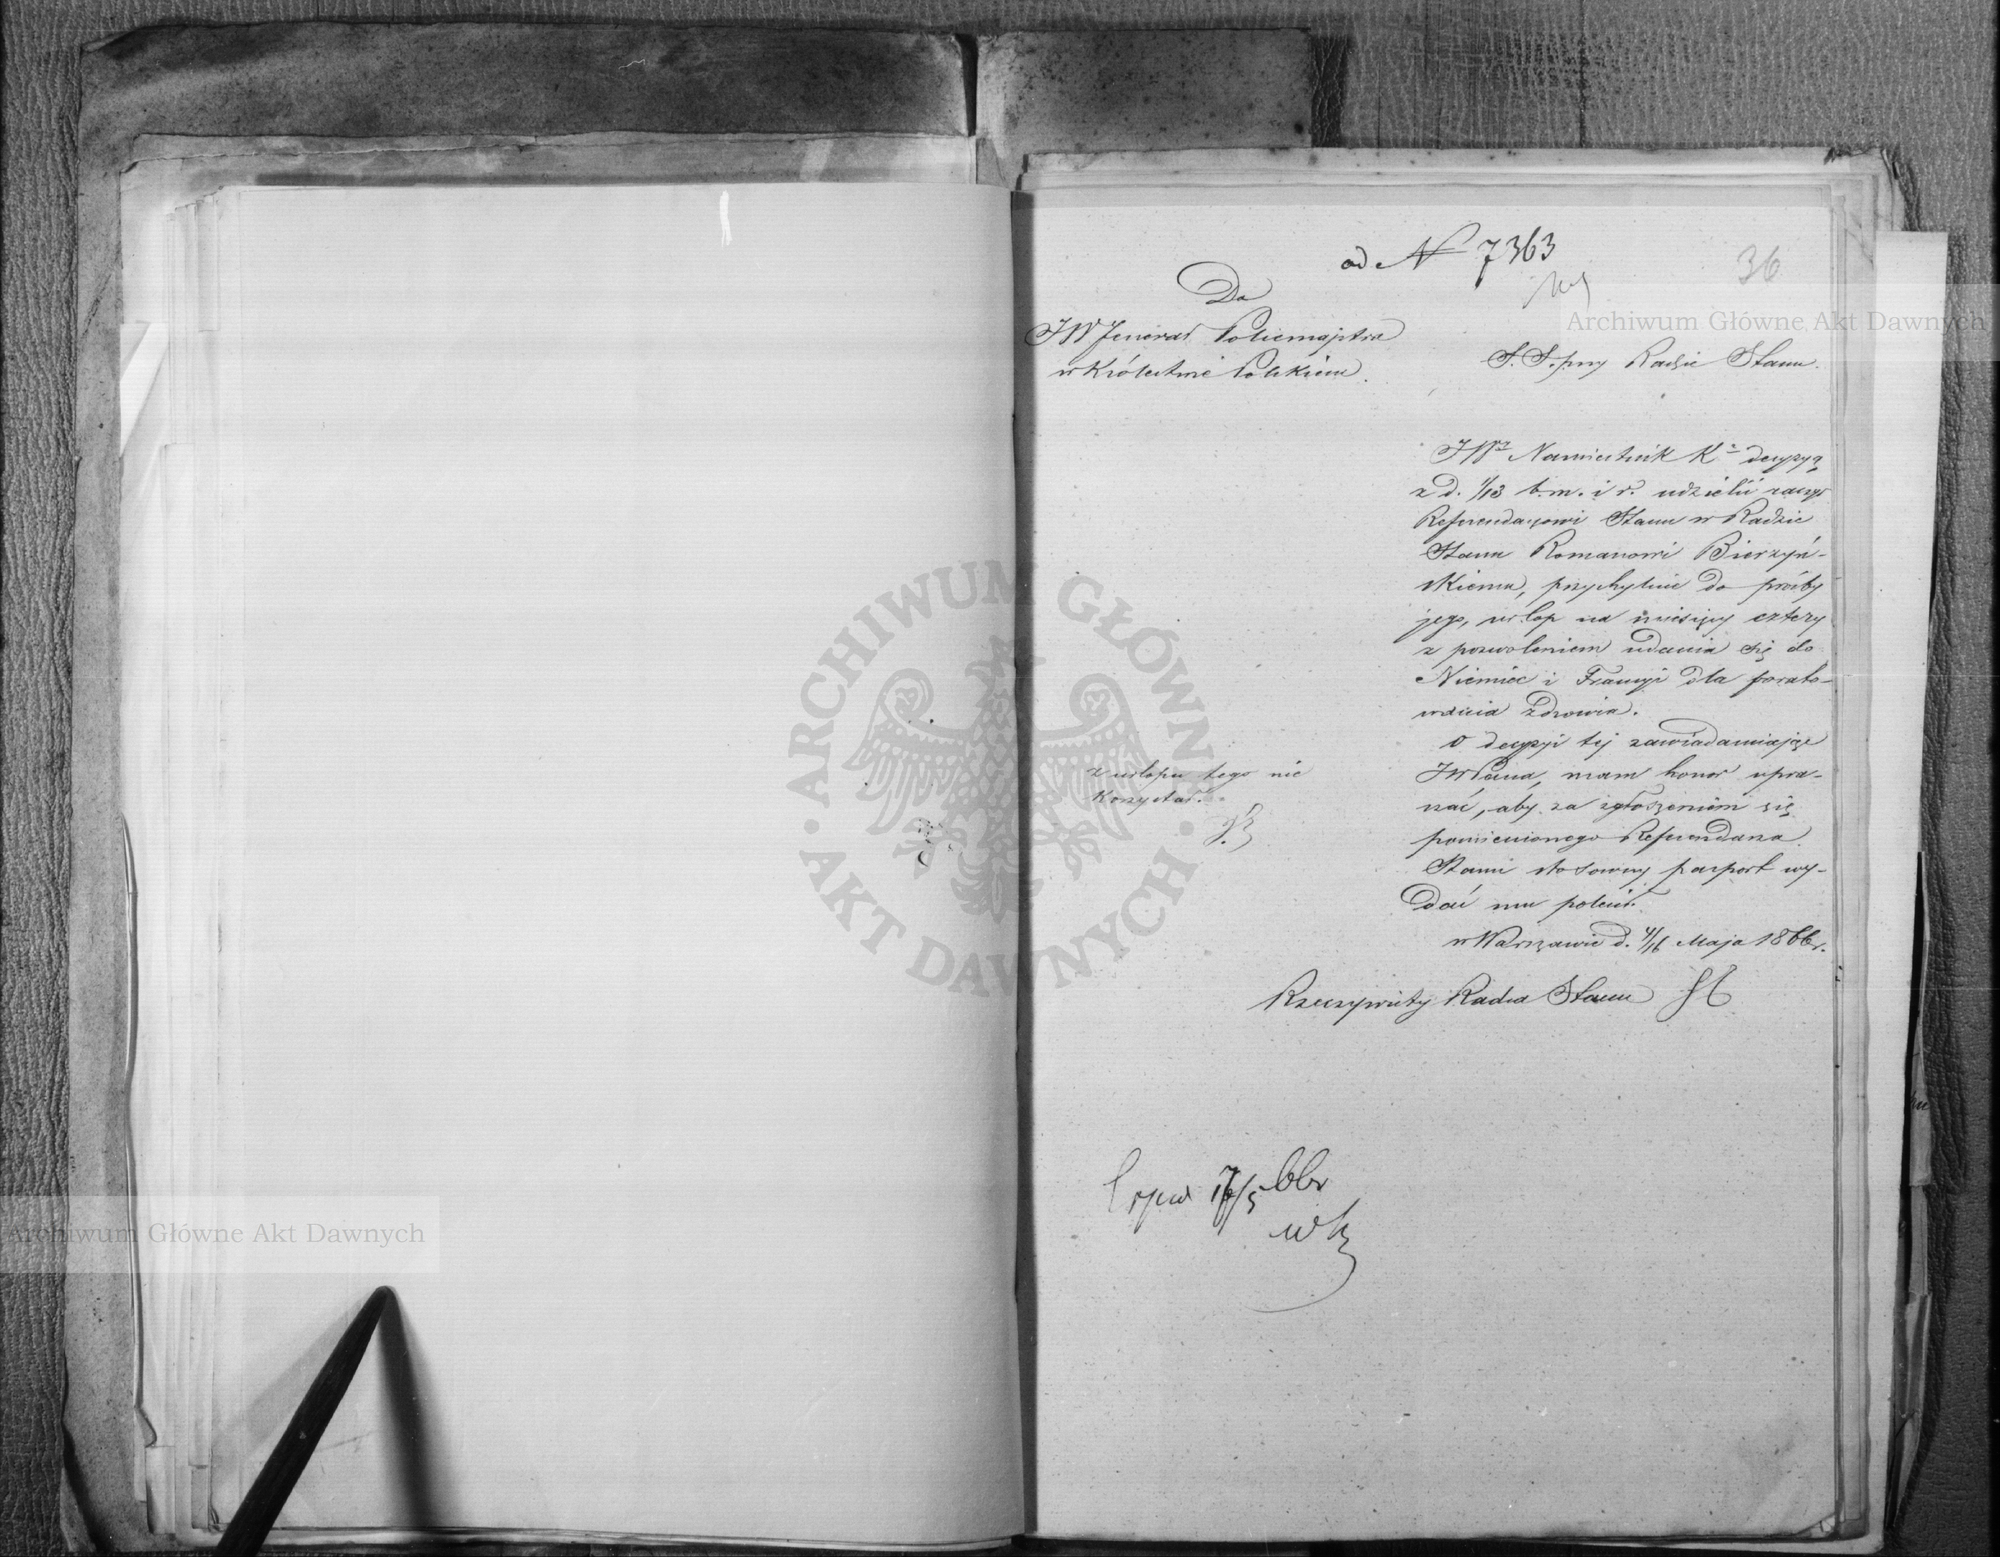 ad N 7363
36
Do
JW Jenerał Policmajstra
w Królestwie Polskiem.
S. S. przy Radzie Stanu.
JW Namiestnik K decyzyą
z d. 1/13 b. m. i r. udzielić raczył
Referendarzowi Stanu w Radzie
Stanu Romanowi Bierzyń-
skiemu, przychylnie do prośby
jego, urlop na miesięcy cztery
z pozwoleniem udania się do
Niemiec i Francyi dla porato-
wania zdrowia.
O decyzyi tej zawiadamiając
JWPana, mam honor upra-
szać, aby za zgłoszeniem się
pomienionego Referendarza
Stanu stosowny pasport wy-
dać mu polecił.
w Warszawie d. 4/16 Maja 1866 r.
Rzeczywisty Radca Stanu
z urlopu tego nie
korzystał.
Archiwum Główne Akt Dawnych
Archiwum Główne Akt Dawnych
ARCHIWUM GŁÓWNE
AKT DAWNYCH